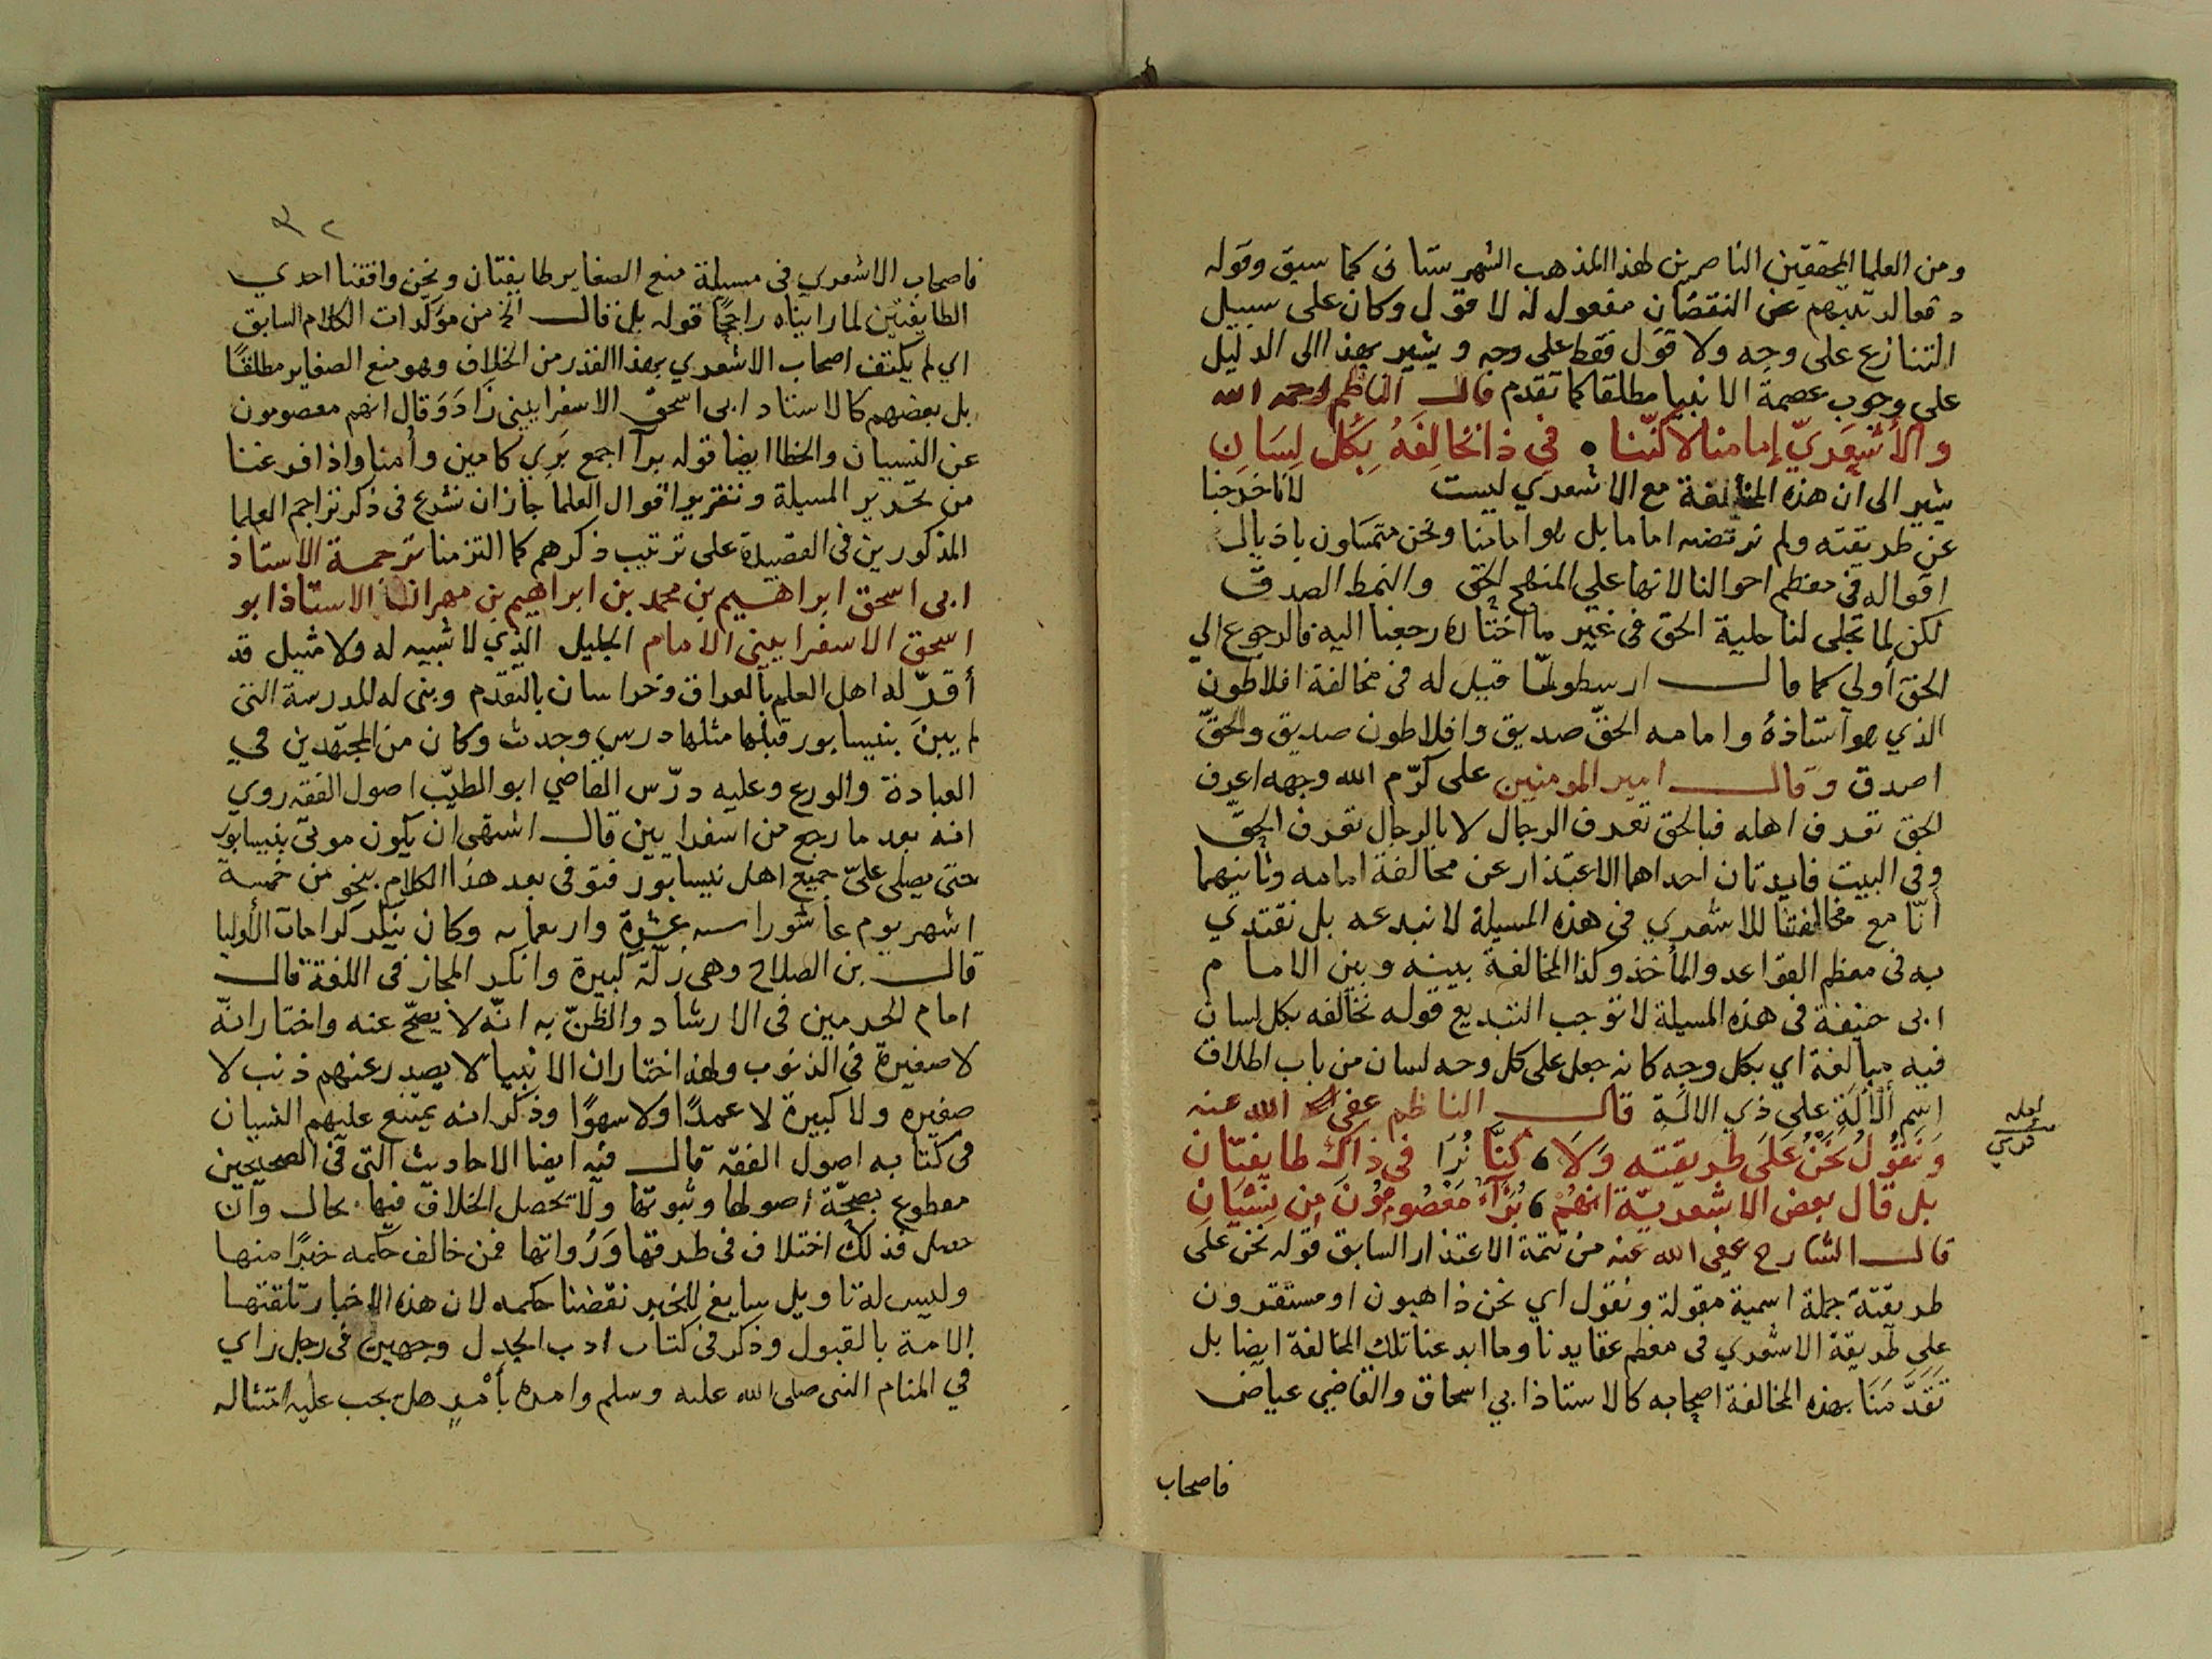 ومن العلما المحققين الناصرين لهذا المذهب الشهرستانى كما سبق وقوله
دفعا لرتبتهم عن النقصان مفعول له لا قول وكان على سبيل
التنازع على وجه ولا قول فقط على وجه ويشير بهذا الى الدليل
على وجوب عصمة الانبيا مطلقا كما تقدم قال الناظم رحمه الله
والأشعريّ إمامنا لاكنّنا • في ذا نخالفهُ بكل لسان
يشير الى ان هذه المخالفة مع الاشعري ليست لانا خرجنا
عن طريقته ولم نرتضه اماما بل هو امامنا ونحن متمسكون باذيال
اقواله فى معظم احوالنا لانها على المنهج الحق والنمط الصدق
لكن لما تجلى لنا حلية الحق فى غير ما اختاره رجعنا اليه فالرجوع الي
الحق أولي كما قال ارسطو لما قيل له فى مخالفة افلاطون
الذي هو استاذهُ وامامه الحقّ صديق وافلاطون صديق والحقّ
اصدق وقال امير المومنين على كرّم الله وجهه اعرف
الحق تعرف اهله فبالحق تعرف الرجال لا بالرجال تعرف الحقّ
وفى البيت فايدتان احداهما الاعتذار عن مخالفة امامه وثانيهما
أنّا مع مخالفتنا للاشعري فى هذه المسيلة لا نبدعه بل نقتدي
به فى معظم القواعد والمأخذ وكذا المخالفة بينه وبين الامام
ابى حنيفة فى هذه المسيلة لا توجب التبديع قوله نخالفه بكل لسان
فيه مبالغة اي بكل وجه كانه جعل على كل وجه لسان من باب اطلاق
اسم الألة على ذي الالة قال الناظم عفى الله عنه
وَنقولُ نحنُ عَلَى طريقته وَلَا، كنّا نُرَا في ذاك طايفتان
لعله
قوسي
بل قال بعض الاشعريّة انهُم، بُرَآءُ معصومونَ من نسيان
قال الشارح عفى الله عنه من تتمة الاعتذار السابق قوله نحن على
طريقته جملة اسمية مقولة ونقول اي نحن ذاهبون او مستقرون
على طريقة الاشعري فى معظم عقايدنا وما ابدعنا تلك المخالفة ايضا بل
تَقدَّمَنَا بهذه المخالفة اصحابه كالاستاذ ابي اسحاق والقاضي عياض
فاصحاب
٣٢
فاصحاب الاشعري فى مسيلة منع الصغاير طايفتان ونحن وافقنا احدي
الطايفتين لما رايناه راجحًا قوله بل قال الخ من موكدات الكلام السابق
اي لم يكتف اصحاب الاشعري بهذا القدر من الخلاف وهو منع الصغاير مطلقًا
بل بعضهم كالاستاد ابى اسحق الاسفراييني زَادَ وَقال انهم معصومون
عن النسيان والخطا ايضا قوله برآ اجمع بَري كامين وأمنا واذا فرغنا
من تحرير المسيلة وتقرير اقوال العلما جاز ان نشرع فى ذكر تراجم العلما
المذكورين فى القصيدة على ترتيب ذكرهم كما التزمنا ترجمة الاستاذ
ابى اسحق ابراهيم بن محمد بن ابراهيم بن مهران الاستاذ ابو
اسحق الاسفراييني الامام الجليل الذي لا شبيه له ولا مثيل قد
أقرّ له اهل العلم بالعراق وخراسان بالتقدم وبنى له المدرسة التى
لم يبن بنيسابور قبلها مثلها درس وحدث وكان من المجتهدين في
العبادة والورع وعليه درّس القاضي ابو الطيّب اصول الفقه روي
انه بعد ما رجع من اسفرايين قال اشتهى ان يكون موتى بنيسابور
حتى يصلى عليّ جميع اهل نيسابور فتوفى بعد هذا الكلام بنحو من خمسة
اشهر يوم عاشورا سنه عشرة واربعمايه وكان ينكر كرامات الأوليا
قال بن الصلاح وهى زلّة كبيرة وانكر المجاز فى اللغة قال
امام الحرمين فى الارشاد والظنّ به انّه لا يصحّ عنه واختار انّه
لا صغيرة في الذنوب ولهذا اختار ان الانبيا لا يصدر عنهم ذنب لا
صغيرة ولا كبيرة لا عمدًا ولا سهوًا وذكر انه يمتنع عليهم النسيان
فى كتابه اصول الفقه قال فيه ايضا الاحاديث التى فى الصحيحين
مقطوع بصحّة اصولها وثبوتها ولا يحصل الخلاف فيها بحال وان
حصل فذلك اختلاف فى طرقها وَرُواتها فمن خالف حكمه خبرًا منها
وليس له تاويل سايغ للخبر نقضنا حكمه لان هذه الاخبار تلقتها
الامة بالقبول وذكر فى كتاب ادب الجدل وجهين فى رجل راي
في المنام النبى صلى الله عليه وسلم وامره بأمرٍ هل يجب عليه امتثاله